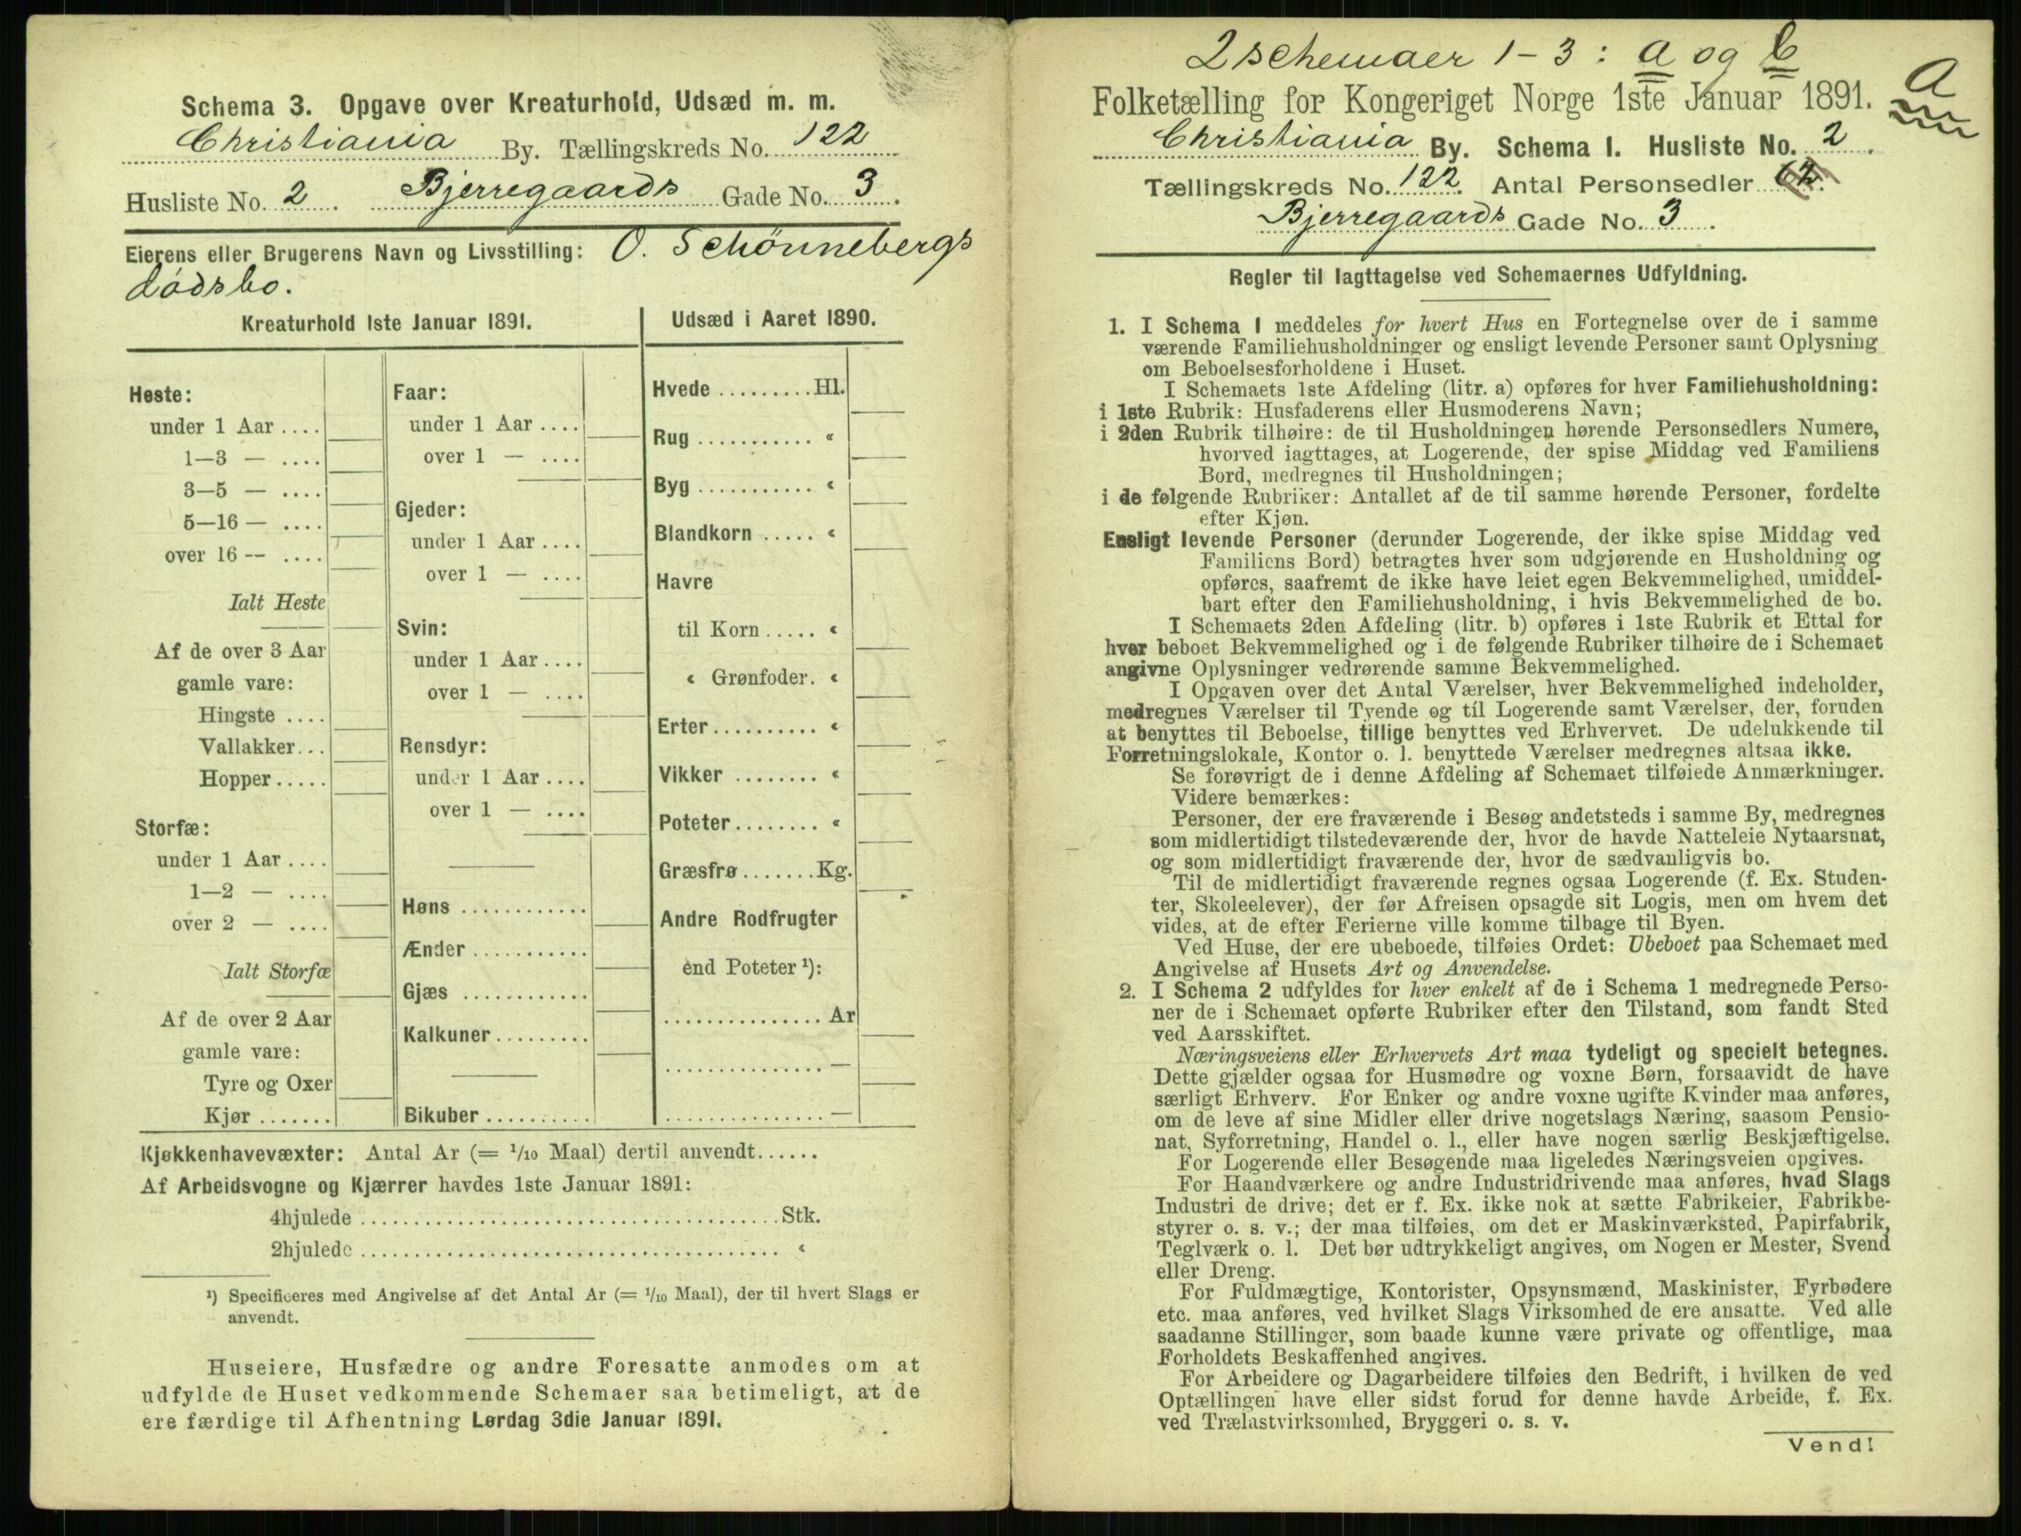 Schema 3. Opgave over Kreaturhold, Udsæd m. m.
Christiania By. Tællingskreds No. 122
Husliste No. 2. Bjerregaards Gade No. 3.
Eierens eller Brugerens Navn og Livsstilling: O. Schønnebergs
dødsbo.
Kreaturhold 1ste Januar 1891.
Heste:
under 1 Aar ....
1—3 — ....
3—5 — ....
5—16 — ....
over 16 — ....
Ialt Heste
Af de over 3 Aar
gamle vare:
Hingste ....
Vallakker...
Hopper.....
Storfæ:
under 1 Aar ....
1—2 — ....
over 2 — ....
Ialt Storfæ
Af de over 2 Aar
gamle vare:
Tyre og Oxer
Kjør.......
Faar:
under 1 Aar ....
over 1 — ....
Gjeder:
under 1 Aar ....
over 1 — ....
Svin:
under 1 Aar ....
over 1 — ....
Rensdyr:
under 1 Aar ....
over 1 — ....
Høns ............
Ænder ...........
Gjæs ............
Kalkuner.........
Bikuber ..........
Udsæd i Aaret 1890.
Hvede .........Hl.
Rug ........... «
Byg ........... «
Blandkorn ..... «
Havre
til Korn ..... «
« Grønfoder. «
Erter.......... «
Vikker ........ «
Poteter........ «
Græsfrø.......Kg.
Andre Rodfrugter
end Poteter ¹):
............... Ar
............... —
............... —
Kjøkkenhavevæxter: Antal Ar (= 1/10 Maal) dertil anvendt......
Af Arbeidsvogne og Kjærrer havdes 1ste Januar 1891:
4hjulede .......................................Stk.
2hjulede ....................................... «
¹) Specificeres med Angivelse af det Antal Ar (= 1/10 Maal), der til hvert Slags er
anvendt.
Huseiere, Husfædre og andre Foresatte anmodes om at
udfylde de Huset vedkommende Schemaer saa betimeligt, at de
ere færdige til Afhentning Lørdag 3die Januar 1891.
2 schemaer 1-3: a og b
A
Folketælling for Kongeriget Norge 1ste Januar 1891.
Christiania By. Schema 1. Husliste No. 2.
Tællingskreds No. 122. Antal Personsedler
Bjerregaards Gade No. 3.
Regler til Iagttagelse ved Schemaernes Udfyldning.
1. I Schema 1 meddeles for hvert Hus en Fortegnelse over de i samme
værende Familiehusholdninger og ensligt levende Personer samt Oplysning
om Beboelsesforholdene i Huset.
I Schemaets 1ste Afdeling (litr. a) opføres for hver Familiehusholdning:
i 1ste Rubrik: Husfaderens eller Husmoderens Navn;
i 2den Rubrik tilhøire: de til Husholdningen hørende Personsedlers Numere,
hvorved iagttages, at Logerende, der spise Middag ved Familiens
Bord, medregnes til Husholdningen;
i de følgende Rubriker: Antallet af de til samme hørende Personer, fordelte
efter Kjøn.
Ensligt levende Personer (derunder Logerende, der ikke spise Middag ved
Familiens Bord) betragtes hver som udgjørende en Husholdning og
opføres, saafremt de ikke have leiet egen Bekvemmelighed, umiddel-
bart efter den Familiehusholdning, i hvis Bekvemmelighed de bo.
I Schemaets 2den Afdeling (litr. b) opføres i 1ste Rubrik et Ettal for
hver beboet Bekvemmelighed og i de følgende Rubriker tilhøire de i Schemaet
angivne Oplysninger vedrørende samme Bekvemmelighed.
I Opgaven over det Antal Værelser, hver Bekvemmelighed indeholder,
medregnes Værelser til Tyende og til Logerende samt Værelser, der, foruden
at benyttes til Beboelse, tillige benyttes ved Erhvervet. De udelukkende til
Forretningslokale, Kontor o. l. benyttede Værelser medregnes altsaa ikke.
Se forøvrigt de i denne Afdeling af Schemaet tilføiede Anmærkninger.
Videre bemærkes:
Personer, der ere fraværende i Besøg andetsteds i samme By, medregnes
som midlertidigt tilstedeværende der, hvor de havde Natteleie Nytaarsnat,
og som midlertidigt fraværende der, hvor de sædvanligvis bo.
Til de midlertidigt fraværende regnes ogsaa Logerende (f. Ex. Studen-
ter, Skoleelever), der før Afreisen opsagde sit Logis, men om hvem det
vides, at de efter Ferierne ville komme tilbage til Byen.
Ved Huse, der ere ubeboede, tilføies Ordet: Ubeboet paa Schemaet med
Angivelse af Husets Art og Anvendelse.
2. I Schema 2 udfyldes for hver enkelt af de i Schema 1 medregnede Perso-
ner de i Schemaet opførte Rubriker efter den Tilstand, som fandt Sted
ved Aarsskiftet.
Næringsveiens eller Erhvervets Art maa tydeligt og specielt betegnes.
Dette gjælder ogsaa for Husmødre og voxne Børn, forsaavidt de have
særligt Erhverv. For Enker og andre voxne ugifte Kvinder maa anføres,
om de leve af sine Midler eller drive nogetslags Næring, saasom Pensio-
nat, Syforretning, Handel o. l., eller have nogen særlig Beskjæftigelse.
For Logerende eller Besøgende maa ligeledes Næringsveien opgives.
For Haandværkere og andre Industridrivende maa anføres, hvad Slags
Industri de drive; det er f. Ex. ikke nok at sætte Fabrikeier, Fabrikbe-
styrer o. s. v.; der maa tilføies, om det er Maskinværksted, Papirfabrik,
Teglværk o. l. Det bør udtrykkeligt angives, om Nogen er Mester, Svend
eller Dreng.
For Fuldmægtige, Kontorister, Opsynsmænd, Maskinister, Fyrbødere
etc. maa anføres, ved hvilket Slags Virksomhed de ere ansatte. Ved alle
saadanne Stillinger, som baade kunne være private og offentlige, maa
Forholdets Beskaffenhed angives.
For Arbeidere og Dagarbeidere tilføies den Bedrift, i hvilken de ved
Optællingen have eller sidst forud for denne havde Arbeide, f. Ex.
ved Trælastvirksomhed, Bryggeri o. s. v.
Vend!